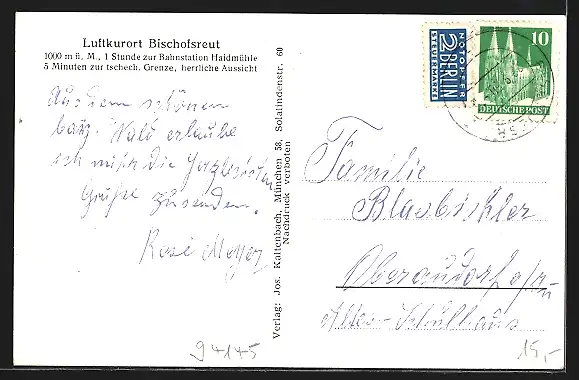 Luftkurort Bischofsreut
1000 m ü. M., 1 Stunde zur Bahnstation Haidmühle
5 Minuten zur tschech. Grenze, herrliche Aussicht
Aus dem schönen
bayr. Wald erlaube
ich mich die herzlichsten
Grüße zusenden.
Rosi
Verlag: Jos. Kaltenbach, München 58, Solalindenstr. 60
Nachdruck verboten
NOTOPFER
2 BERLIN
STEUERMARKE
10
DEUTSCHE POST
Familie
Oberaudorf a/Inn
Altes-Schulhaus
94145
15,-